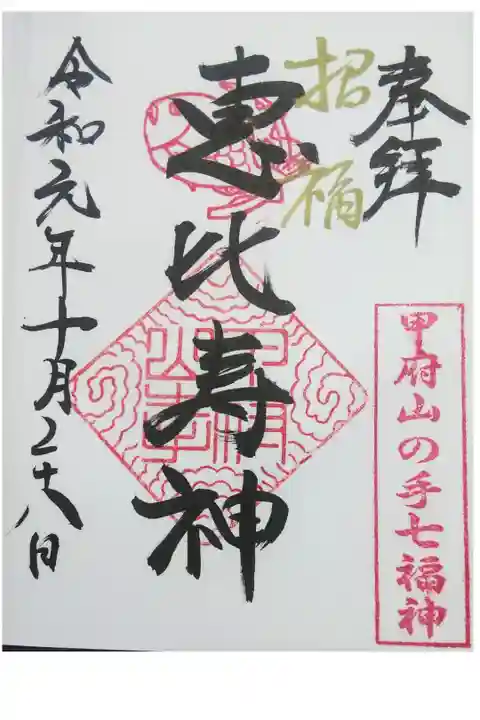 奉拝
甲府山の手七福神
招福
恵比寿神
令和元年十月二十八日